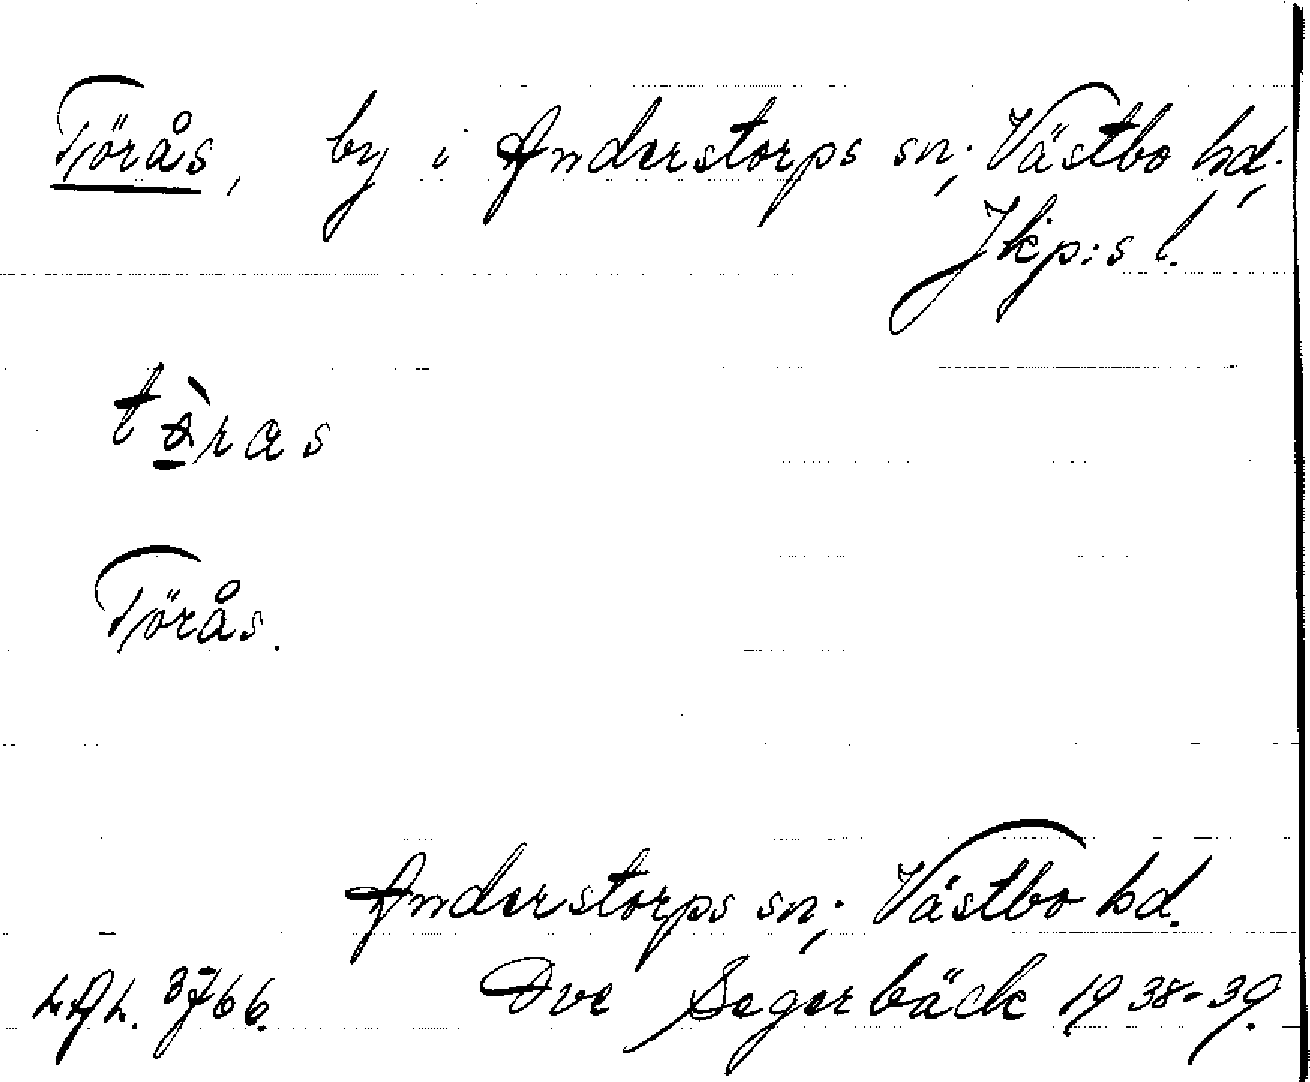 Törås, by i Anderstorps sn., Västbo hd.,
Jkp:s l.
Törås.
Anderstorps sn., Västbo hd.
LAL. 3766. Ove Segerbäck 1938-39.